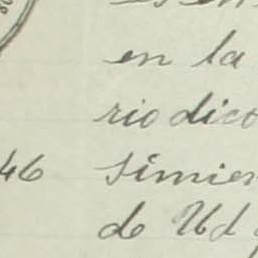 en la
riodico
46 simien
de Ud